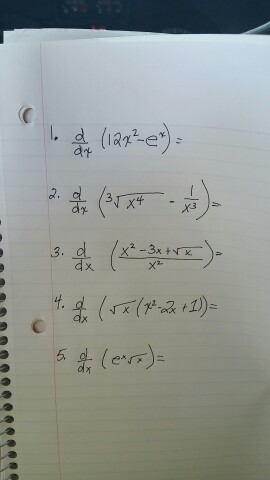 1. d/dx (12x² - eˣ) =
2. d/dx (³√x⁴ - 1/x³) =
3. d/dx ((x² - 3x + √x)/x²) =
4. d/dx (√x (x² - 2x + 1)) =
5. d/dx (eˣ√x) =